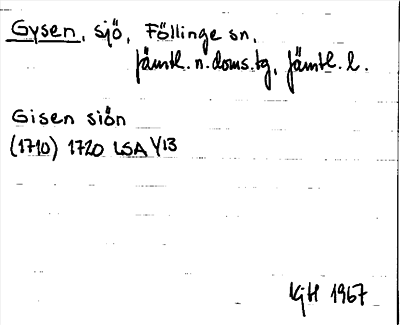 Gysen, sjö, Föllinge sn,
Jämtl. n. doms.tg, Jämtl. l.
Gisen siön
(1710) 1720 LSA Y13
KgH 1967